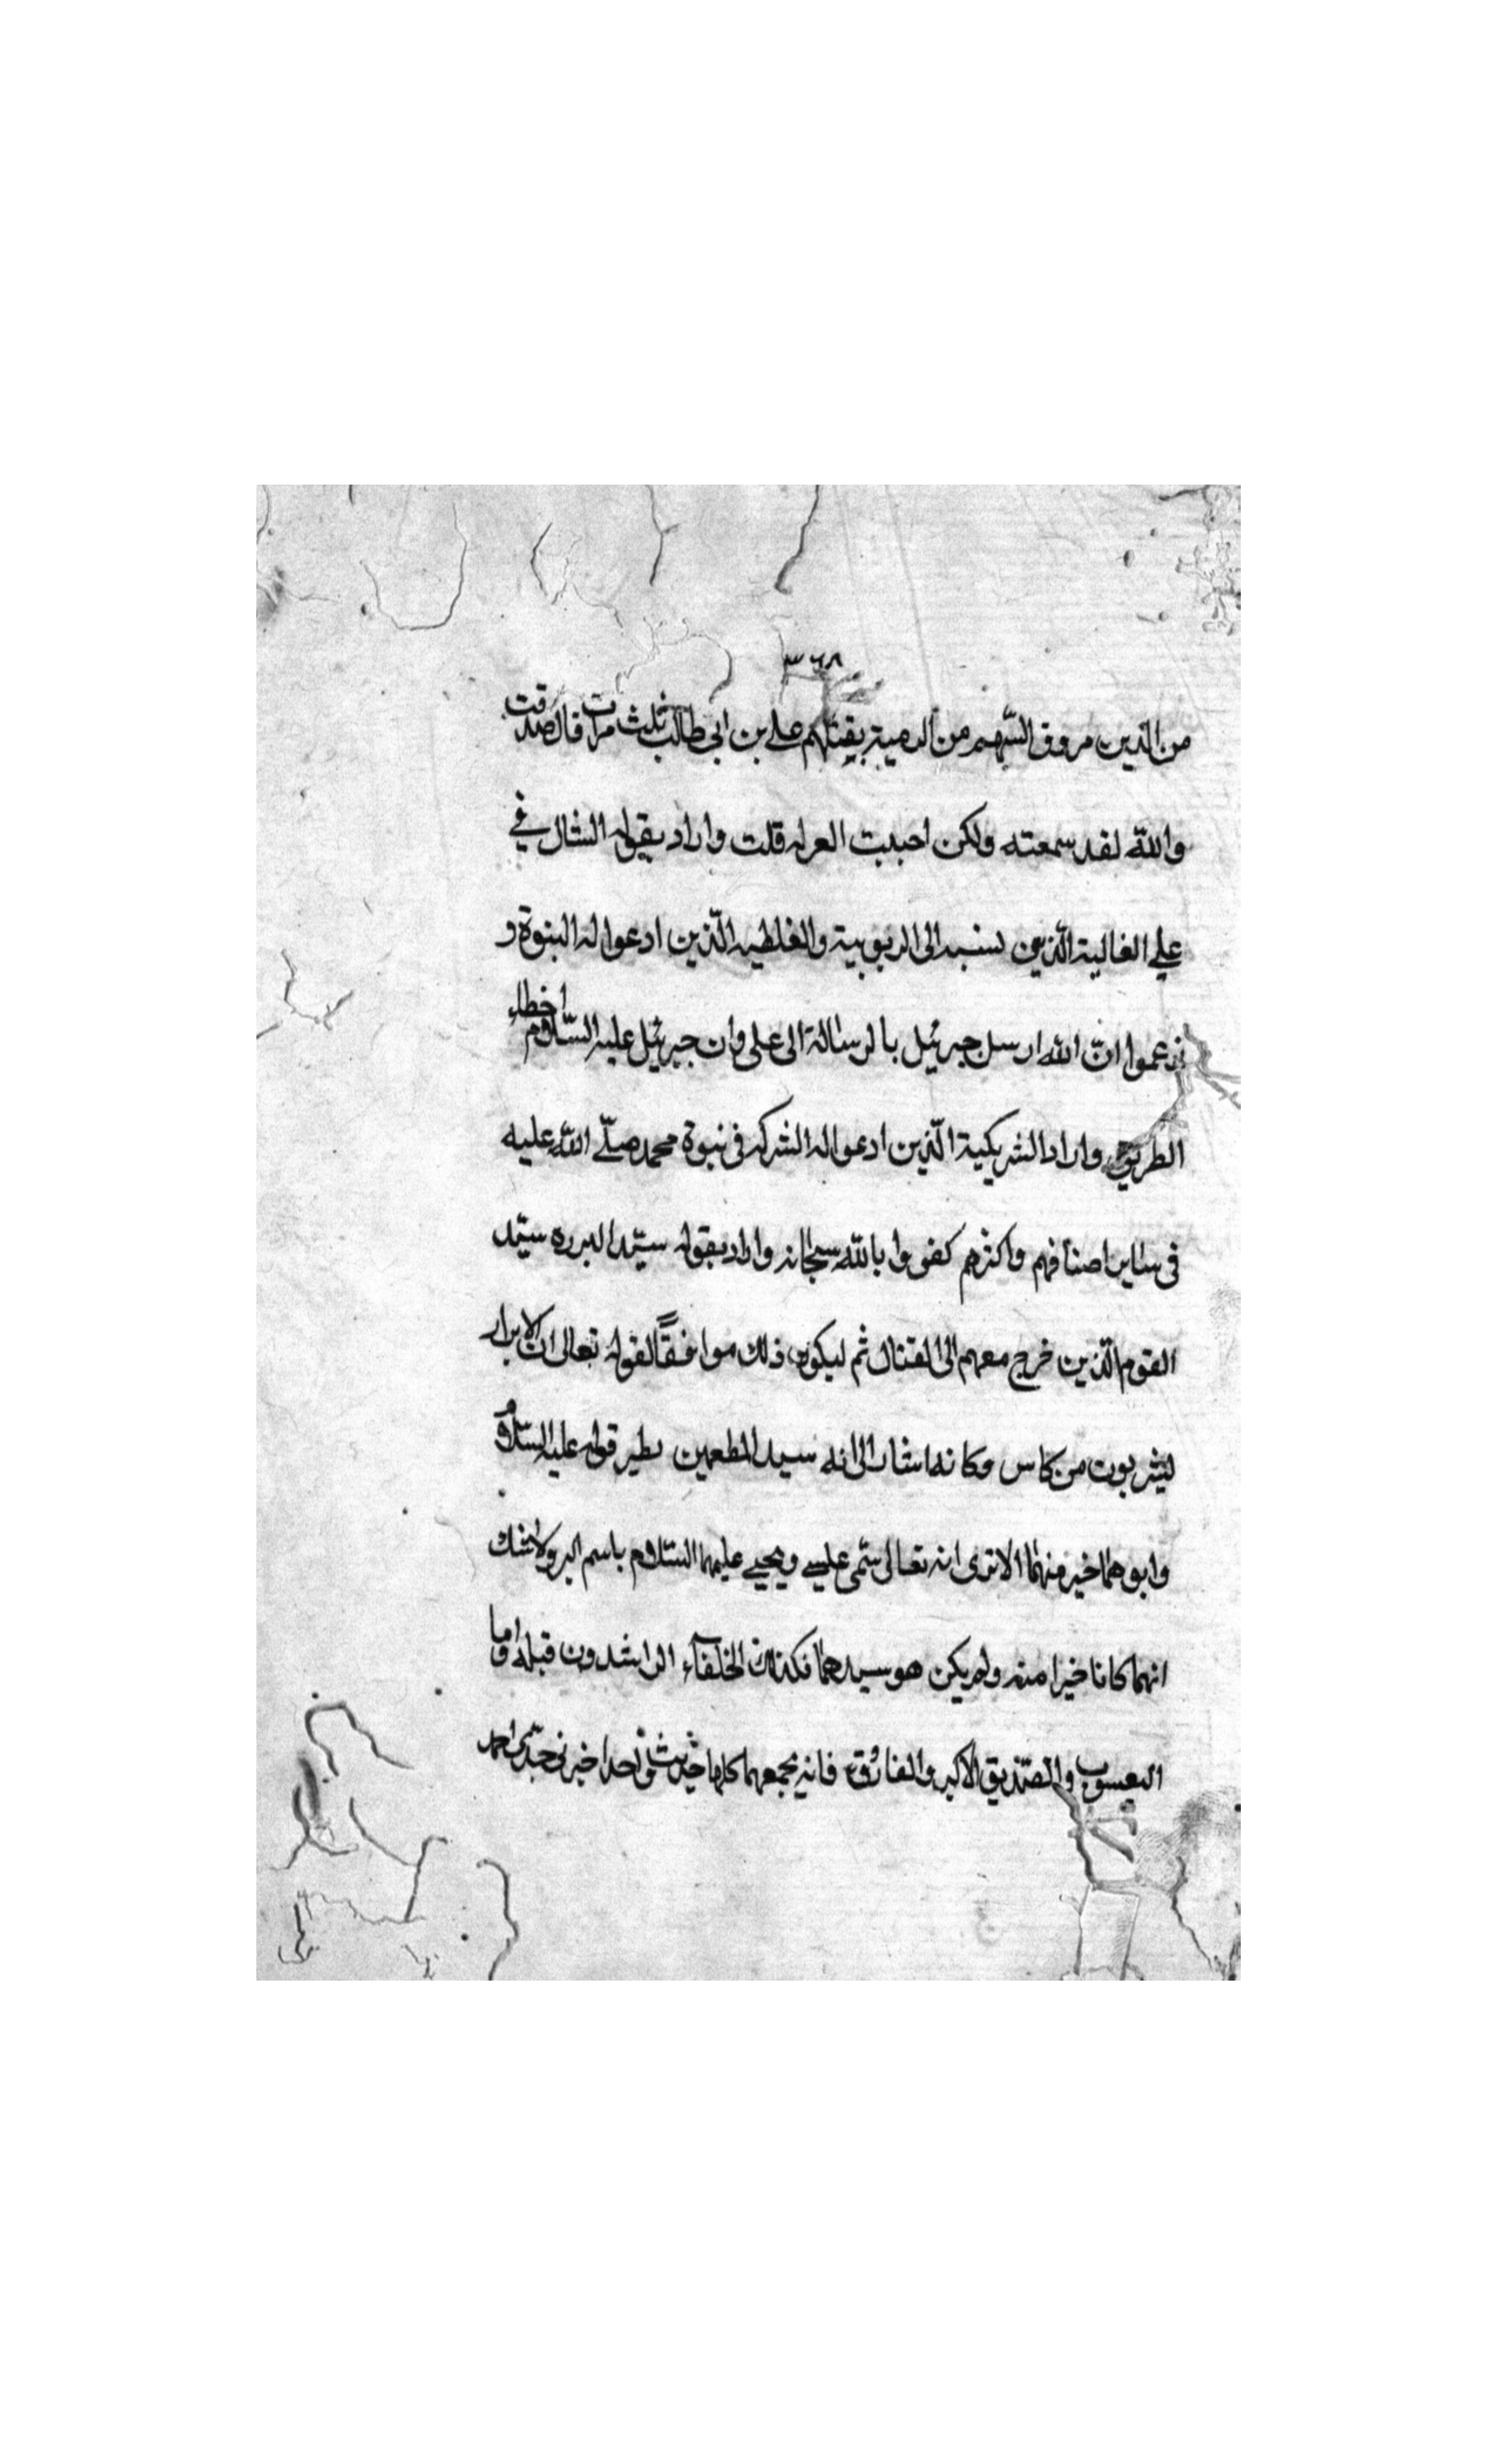 ٣٦٨
من الدين مروق السهم من الرمية يقتلهم علي بن ابي طالب ثلث مرات قال صدقت
والله لقد سمعته ولكن احببت العزله قلت واراد بقوله الشال في
علي الغالية الذين نسبه الى الربوبية والغلطيه الذين ادعوا له النبوة و
زعموا ان الله ارسل جبرئيل بالرسالة الى على وان جبرئيل عليه السلام اخطاء
الطريق واراد الشريكية الذين ادعوا له الشركه فى نبوة محمد صلى الله عليه
فى ساير اصنافهم واكثرهم كفروا بالله سبحانه واراد بقوله سيد البرره سيد
القوم الذين خرج معهم الى القتال ثم ليكون ذلك موافقًا لقوله تعالى ان الابرار
يشربون من كاس وكانه اشار الى انه سيد المطعمين نظير قوله عليه السلام
وابوهما خير منهما الا ترى انه تعالى سمى عيسى ويحيى عليهما السلام باسم البر ولا شك
انهما كانا خيرا منه ولم يكن هو سيدهما فكذلك الخلفاء الراشدون قبله واما
اليعسوب والصديق الاكبر والفاروق فانه يجمعهما كلها حديث واحد اخبرنى جدى احمد